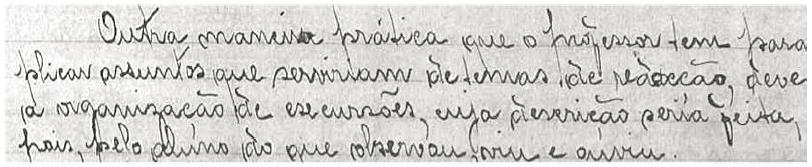 Outra maneira prática que o professor tem para
plicar assuntos que serviriam de temas de redacção, deve
a organização de excursões, cuja descrição seria feita,
pois, pelo aluno do que observou, viu e ouviu.